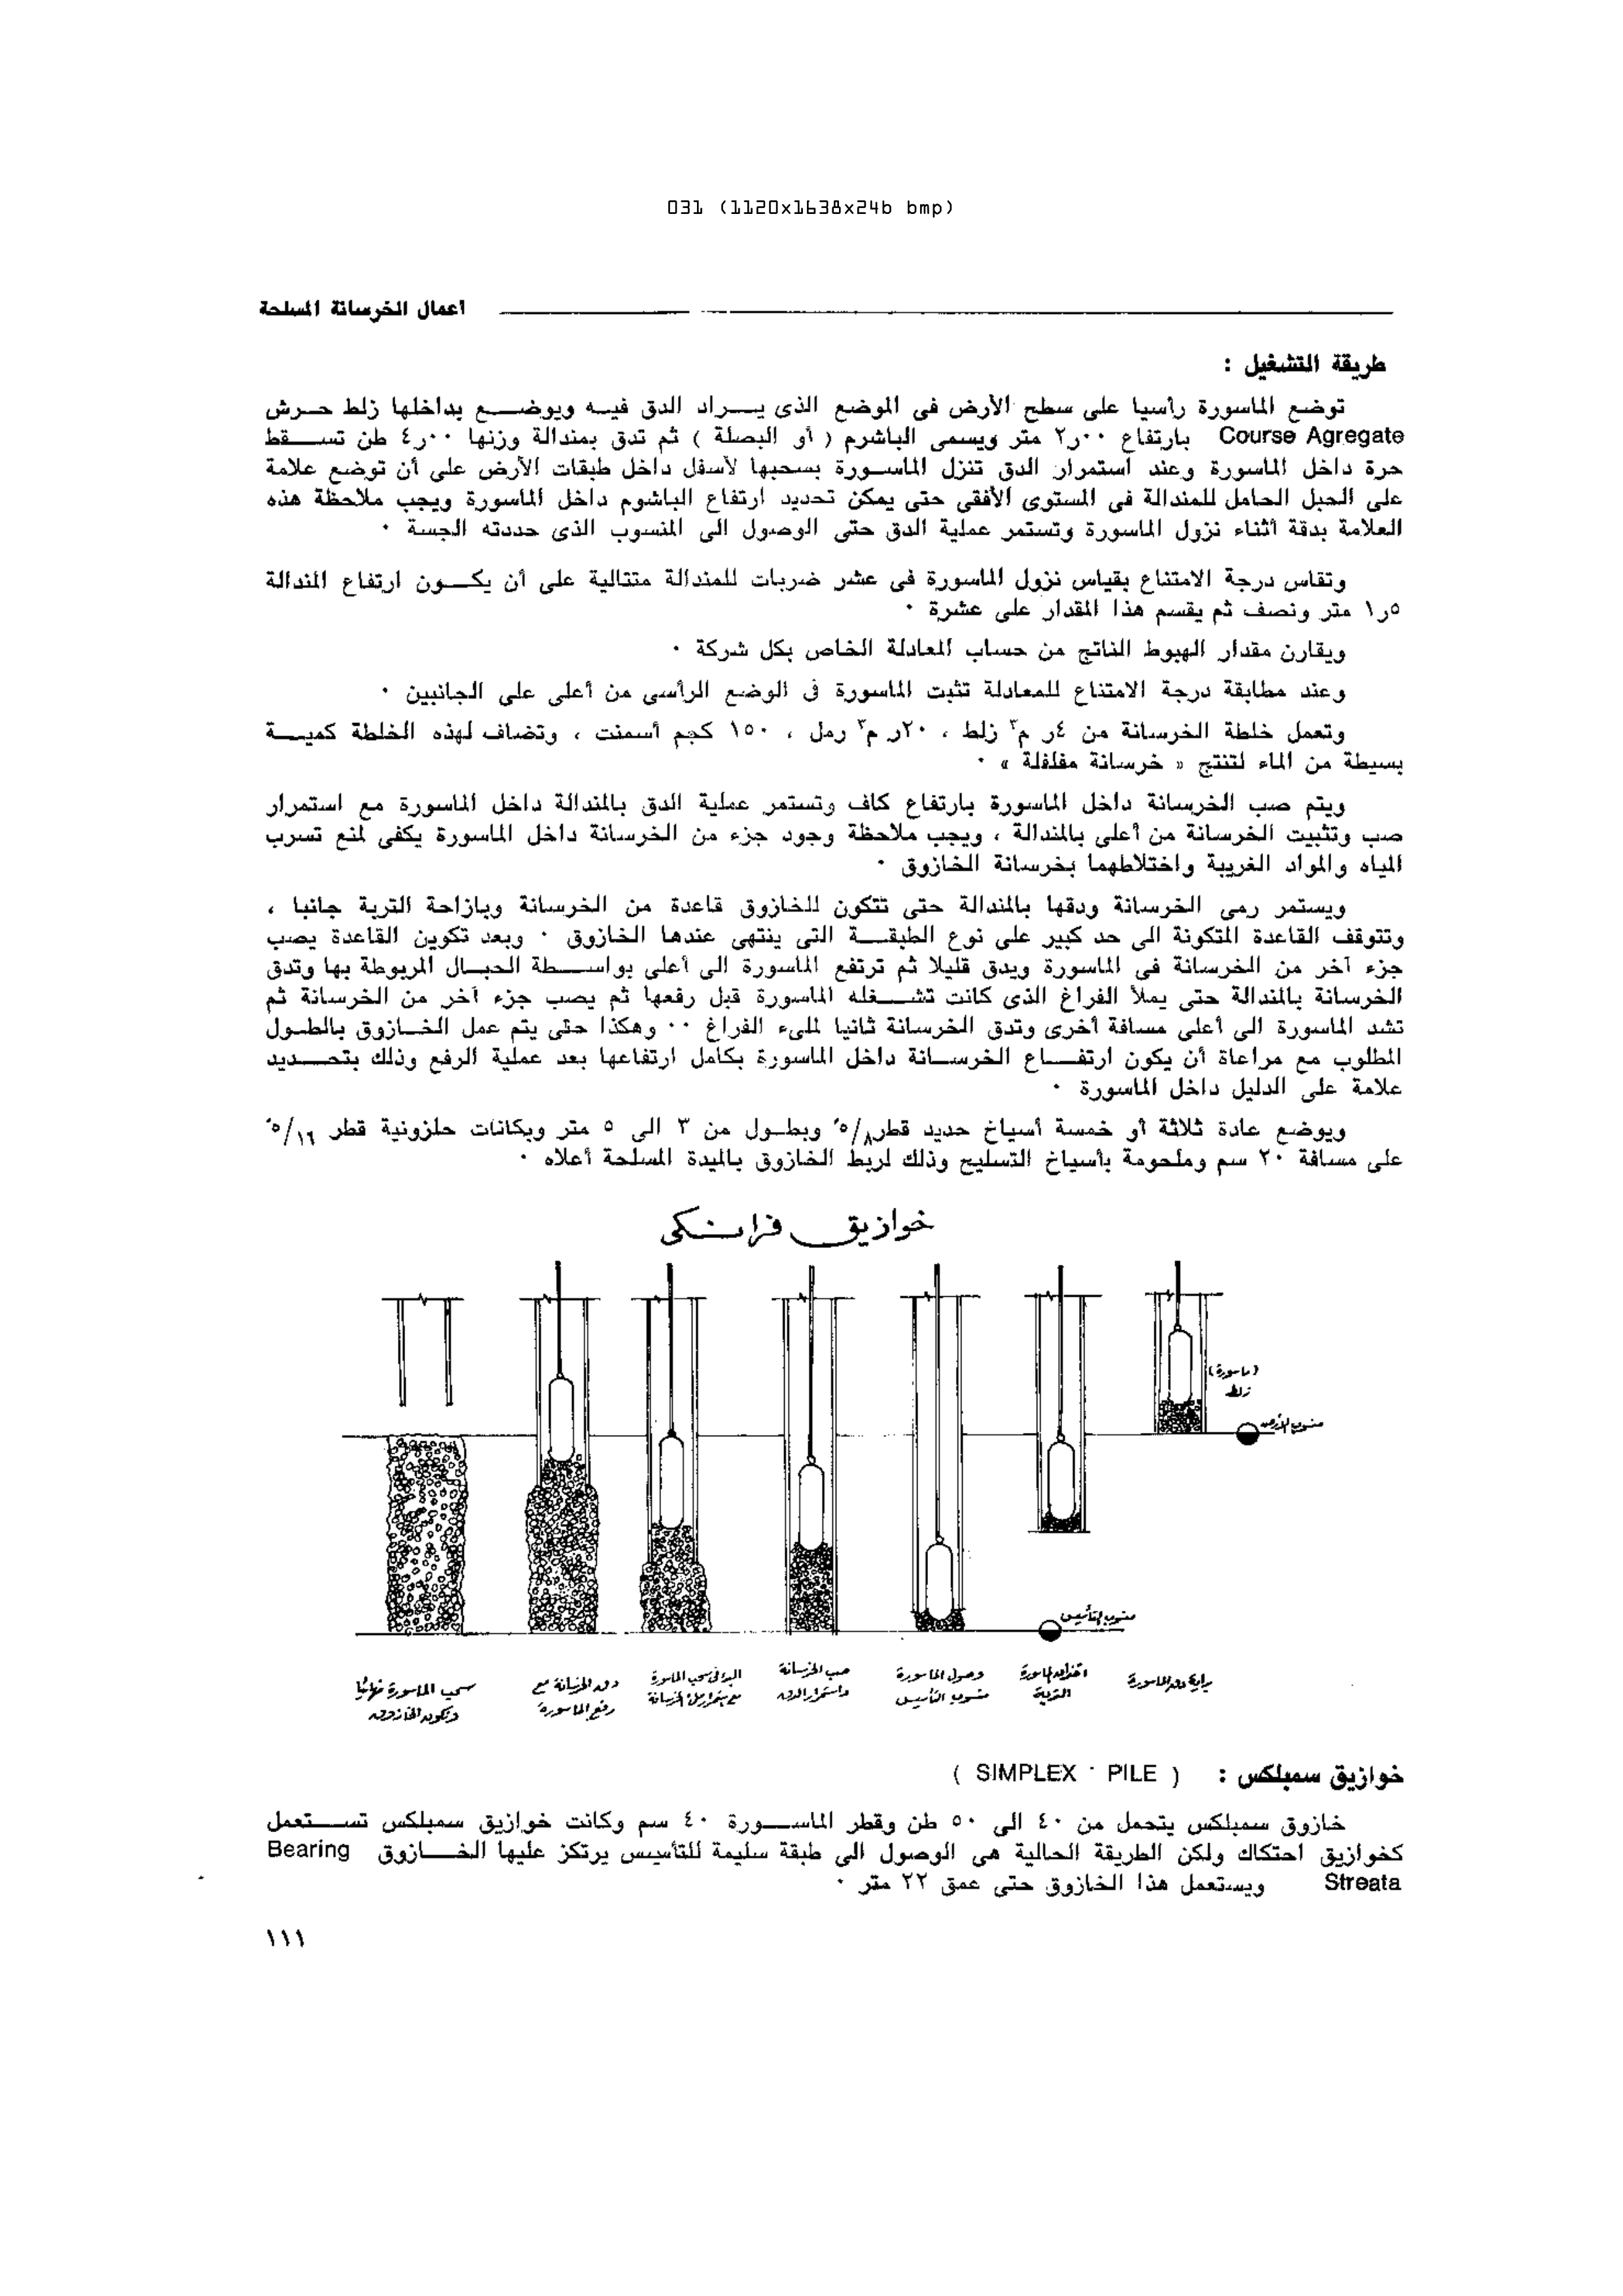 031 (1120x1638x24b bmp)
اعمال الخرسانة المسلحة
طريقة التشغيل :
توضع الماسورة رأسيا على سطح الأرض فى الموضع الذى يــراد الدق فيــه ويوضــع بداخلها زلط حــرش
Course Agregate بارتفاع ٢٫٠٠ متر ويسمى الباشرم ( أو البصلة ) ثم تدق بمندالة وزنها ٤٫٠٠ طن تســقط
حرة داخل الماسورة وعند استمرار الدق تنزل الماســورة بسحبها لأسفل داخل طبقات الأرض على أن توضع علامة
على الحبل الحامل للمندالة فى المستوى الأفقى حتى يمكن تحديد ارتفاع الباشوم داخل الماسورة ويجب ملاحظة هذه
العلامة بدقة أثناء نزول الماسورة وتستمر عملية الدق حتى الوصول الى المنسوب الذى حددته الجسة ٠
وتقاس درجة الامتناع بقياس نزول الماسورة فى عشر ضربات للمندالة متتالية على أن يكــون ارتفاع المندالة
١٫٥ متر ونصف ثم يقسم هذا المقدار على عشرة ٠
ويقارن مقدار الهبوط الناتج من حساب المعادلة الخاص بكل شركة ٠
وعند مطابقة درجة الامتناع للمعادلة تثبت الماسورة فى الوضع الرأسى من أعلى على الجانبين ٠
وتعمل خلطة الخرسانة من ٤ر م٣ زلط ، ٢٠ر م٣ رمل ، ١٥٠ كجم أسمنت ، وتضاف لهذه الخلطة كميــة
بسيطة من الماء لتنتج « خرسانة مفلفلة » ٠
ويتم صب الخرسانة داخل الماسورة بارتفاع كاف وتستمر عملية الدق بالمندالة داخل الماسورة مع استمرار
صب وتثبيت الخرسانة من أعلى بالمندالة ، ويجب ملاحظة وجود جزء من الخرسانة داخل الماسورة يكفى لمنع تسرب
المياه والمواد الغريبة واختلاطهما بخرسانة الخازوق ٠
ويستمر رمى الخرسانة ودقها بالمندالة حتى تتكون للخازوق قاعدة من الخرسانة وبازاحة التربة جانبا ،
وتتوقف القاعدة المتكونة الى حد كبير على نوع الطبقــة التى ينتهى عندها الخازوق ٠ وبعد تكوين القاعدة يصب
جزء آخر من الخرسانة فى الماسورة ويدق قليلا ثم ترتفع الماسورة الى أعلى بواســطة الحبــال المربوطة بها وتدق
الخرسانة بالمندالة حتى يملأ الفراغ الذى كانت تشــغله الماسورة قبل رفعها ثم يصب جزء آخر من الخرسانة ثم
تشد الماسورة الى أعلى مسافة أخرى وتدق الخرسانة ثانيا لملىء الفراغ ٠٠ وهكذا حتى يتم عمل الخــازوق بالطــول
المطلوب مع مراعاة أن يكون ارتفــاع الخرســانة داخل الماسورة بكامل ارتفاعها بعد عملية الرفع وذلك بتحــديد
علامة على الدليل داخل الماسورة ٠
ويوضع عادة ثلاثة أو خمسة أسياخ حديد قطر ٥/٨ً وبطــول من ٣ الى ٥ متر وبكانات حلزونية قطر ٥/١٦ً
على مسافة ٢٠ سم وملحومة بأسياخ التسليح وذلك لربط الخازوق بالميدة المسلحة أعلاه ٠
خوازيق فرانكى
(ماسورة)
زلط
منسوب الأرض
منسوب التأسيس
بداية دق الماسورة
اختراق الماسورة
التربة
وصول الماسورة
منسوب التأسيس
صب الخرسانة
واستمرار الدق
البدء فى سحب الماسورة
مع استمرار دق الخرسانة
دق الخرسانة مع
رفع الماسورة
سحب الماسورة نهائيا
وتكوين الخازوق
خوازيق سمبلكس : ( SIMPLEX - PILE )
خازوق سمبلكس يتحمل من ٤٠ الى ٥٠ طن وقطر الماســورة ٤٠ سم وكانت خوازيق سمبلكس تســتعمل
كخوازيق احتكاك ولكن الطريقة الحالية هى الوصول الى طبقة سليمة للتأسيس يرتكز عليها الخــازوق Bearing
Streata ويستعمل هذا الخازوق حتى عمق ٢٢ متر ٠
١١١